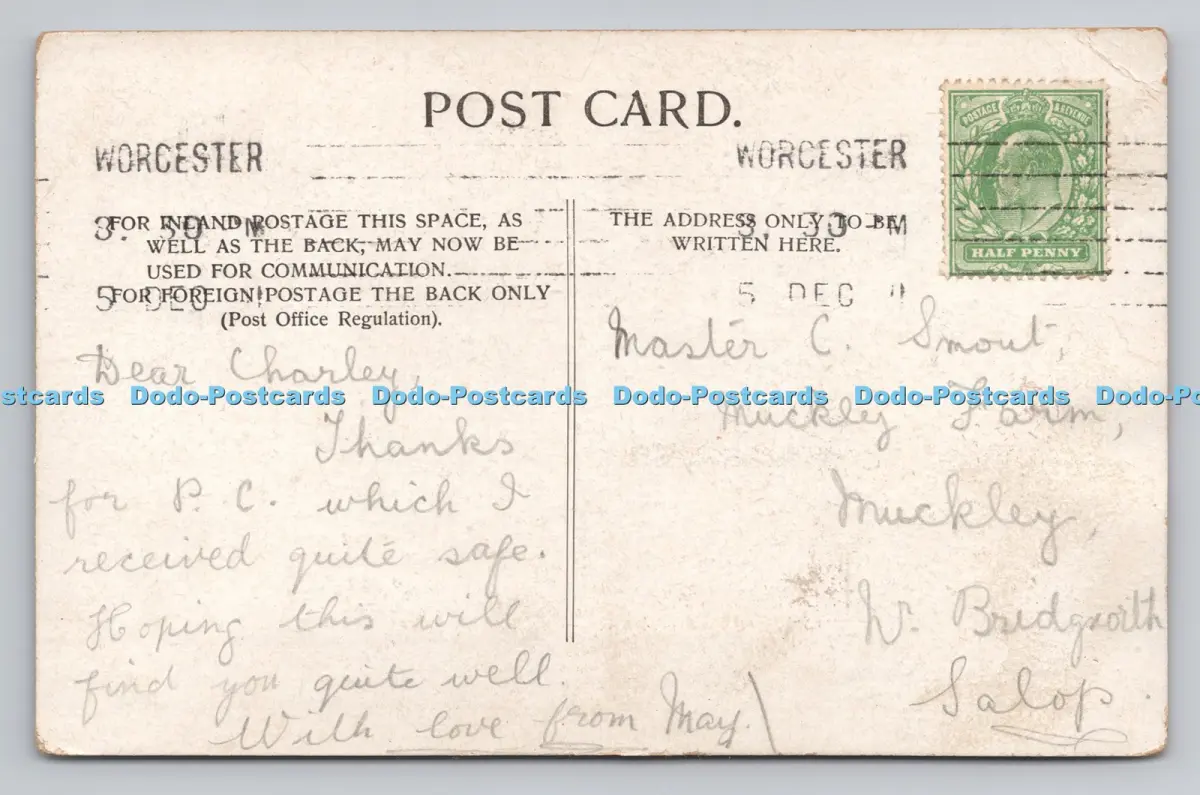 POST CARD.
WORCESTER
WORCESTER
POSTAGE REVENUE
HALF PENNY
3. 30 PM
3. 30 PM
5 DEC
5 DEC
FOR INLAND POSTAGE THIS SPACE, AS
WELL AS THE BACK, MAY NOW BE
USED FOR COMMUNICATION.
FOR FOREIGN POSTAGE THE BACK ONLY
(Post Office Regulation).
THE ADDRESS ONLY TO BE
WRITTEN HERE.
Dear Charley,
Thanks
for P. C. which I
received quite safe.
Hoping this will
find you quite well.
With love from May.
Master C. Smout,
Muckley Farm,
Muckley,
Nr. Bridgnorth
Salop.
stcards Dodo-Postcards Dodo-Postcards Dodo-Postcards Dodo-Postcards Dodo-Po